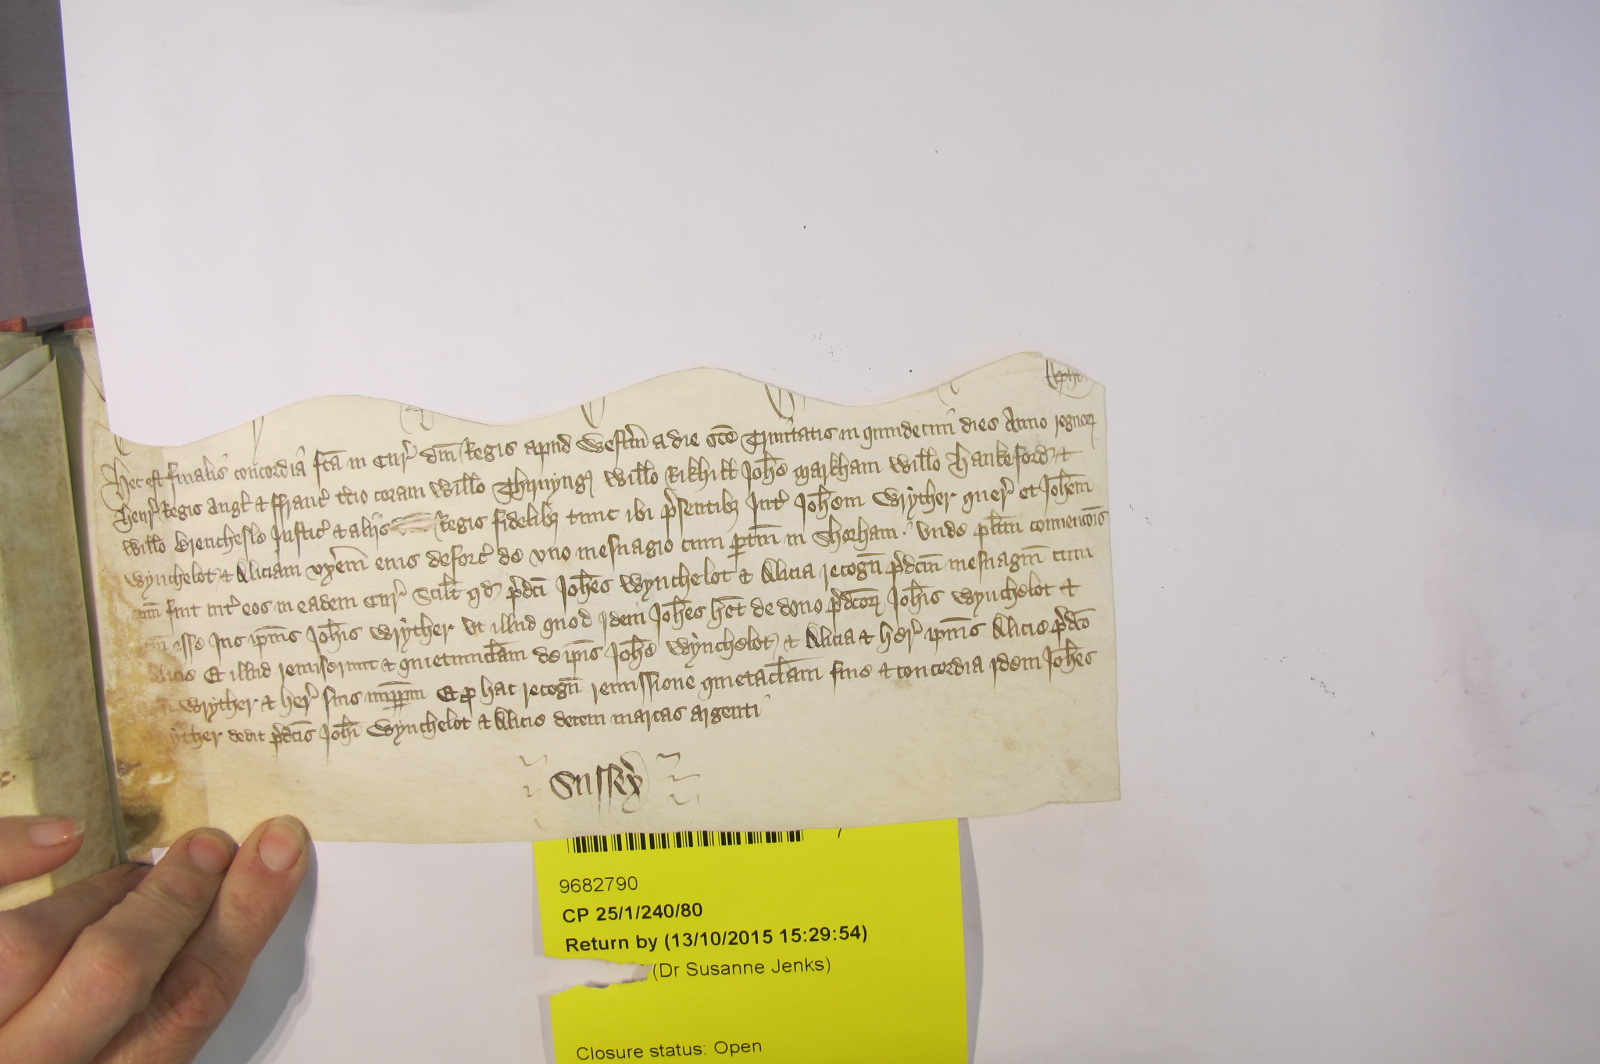 Hec est finalis concordia fc̃a in Cur̃ dñi Regis apud Westm̃ a die sc̃e Trinitatis in quindecim dies Anno regnoꝝ
Henr̃ Regis Angl̃ & Franc̃ t̃cio coram Will̃o Thirnyng Will̃o Rikhill Joh̃e Markham Will̃o Hankeford &
Will̃o Brenchesle Justic̃ & aliis Regis fidelibꝫ tunc ibi p̃sentibꝫ Int̃ Joh̃em Wryther quer̃ et Joh̃em
Wynchelot & Aliciam vx̃em eius deforc̃ de vno mesuagio cum ptiñ in Shorham . Vnde pl̃itm conuenc̃ois
sum̃ fuit int̃ eos in eadem Cur̃ Scil̃t qd p̃dc̃i Joh̃es Wynchelot & Alicia recogñ p̃dc̃m mesuagiũ cum
ptiñ esse Ius ip̃ius Joh̃is Wryther Vt illud quod Idem Joh̃es h̃et de dono p̃dc̃oꝝ Joh̃is Wynchelot &
Alicie Et illud remiserunt & quietumclam̃ de ip̃is Joh̃e Wynchelot & Alicia & her̃ ip̃ius Alicie p̃dc̃o
Wryther & her̃ suis imppm̃ Et p hac recogñ remissione quietaclam̃ fine & concordia Idem Joh̃es
Wryther dedit p̃dc̃is Joh̃i Wynchelot & Alicie decem marcas argenti
Sussex̃
9682790
CP 25/1/240/80
Return by (13/10/2015 15:29:54)
(Dr Susanne Jenks)
Closure status: Open